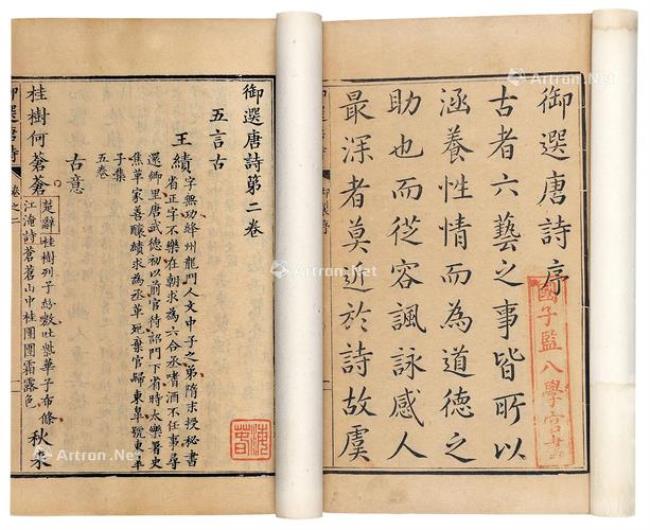 御選唐詩序
古者六藝之事皆所以
涵養性情而為道德之
助也而從容諷詠感人
最深者莫近於詩故虞
國子監八學官書
御選唐詩第二卷
五言古
王績
字無功絳州龍門人文中子之弟隋末授秘書
省正字不樂在朝求為六合丞嗜酒不任事尋
還鄉里唐武德初以前官待詔門下省時太樂署史
焦革家善釀績求為丞革死棄官歸東皋號東皋
子集
五卷
古意
桂樹何蒼蒼
楚辭桂樹列子紛敷吐紫華子布條
江淹詩蒼蒼山中桂團團霜露色
秋來
御選唐詩
卷之二
Artron.Net
Artron.Net
Artron.Net
Artron.Net